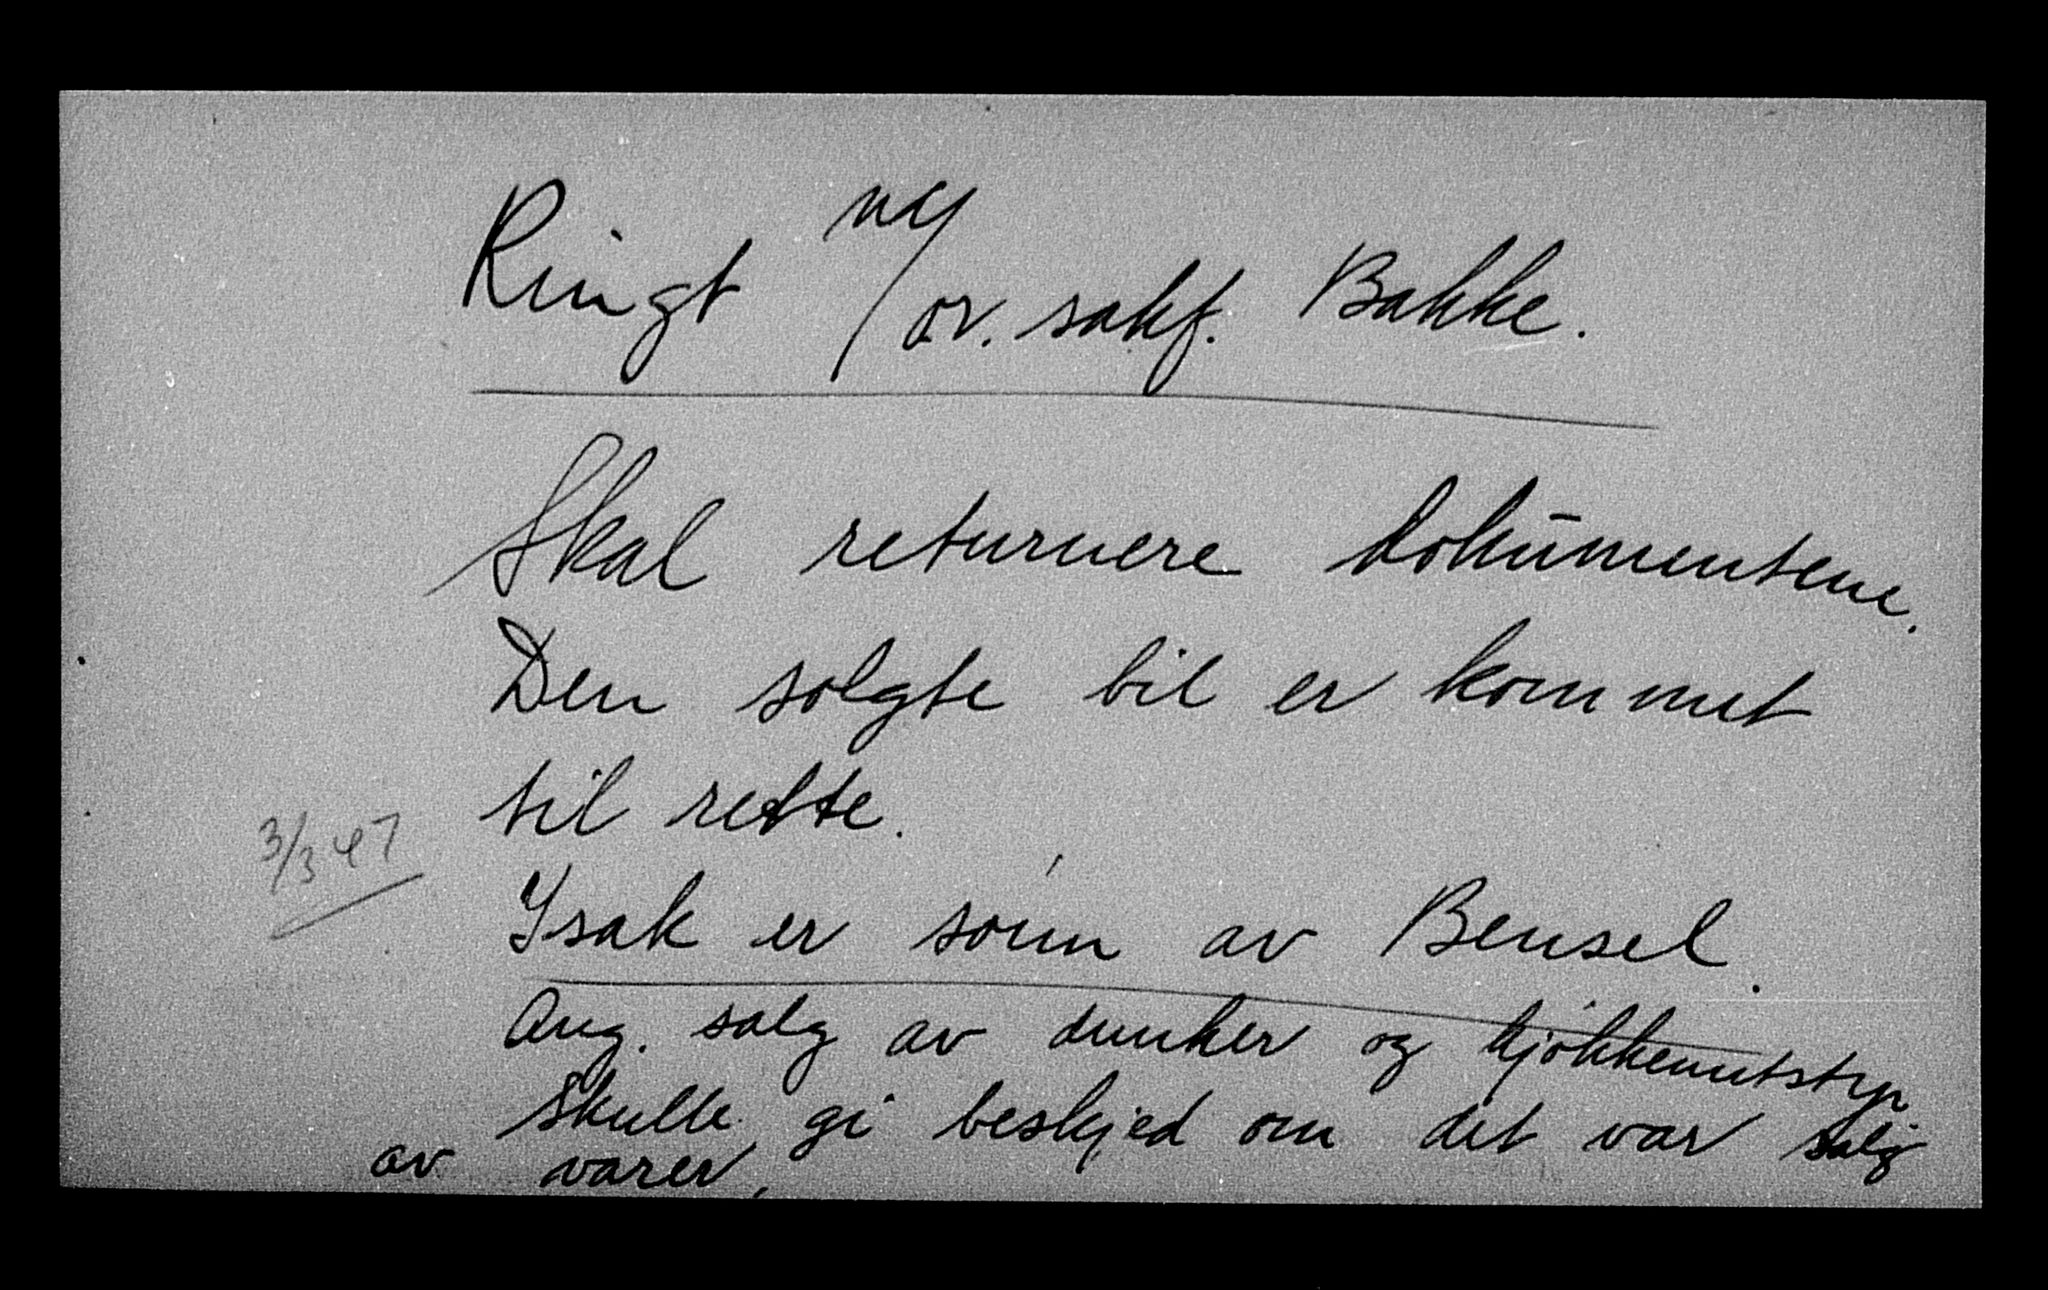 Ringt m/ or. sakf. Bakke.
Skal returnere dokūmentene.
Den solgte bil er kommet
til rette.
3/3 47
Isak er sønn av Bensel.
Ang. salg av dunker og kjøkkenutstyr
skulle gi beskjed om det var salg
av varer,